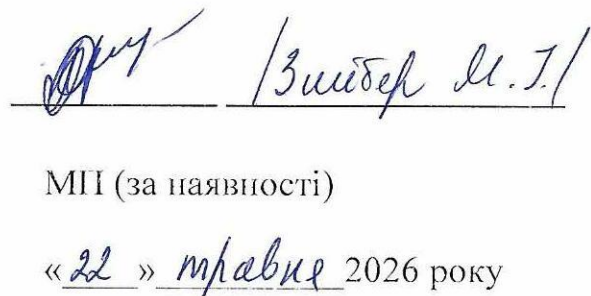 /Зимбер М.Г./
МП (за наявності)
«22» травня 2026 року